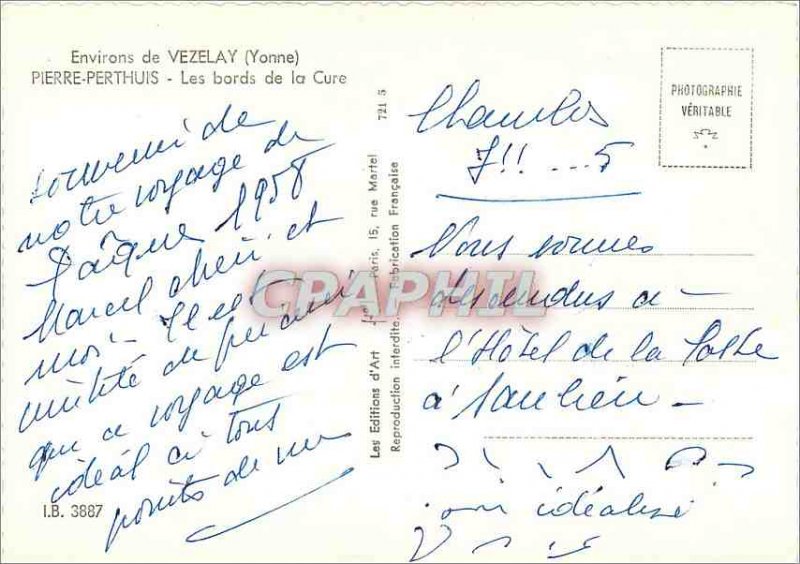 Environs de VEZELAY (Yonne)
PIERRE-PERTHUIS - Les bords de la Cure
souvenir de
notre voyage de
Pâques 1958
Marcel chéri et
moi - Il est
inutile de
que ce voyage est
idéal à tous
points de vue
I.B. 3887
Les Editions d'Art Paris, 15, rue Martel
Reproduction interdite. Fabrication Française
721 5
PHOTOGRAPHIE
VÉRITABLE
7!! ... 5
Nous sommes
descendus à -
l'Hôtel de la Poste
à Saulieu -
idéalisé
CPAPHIL